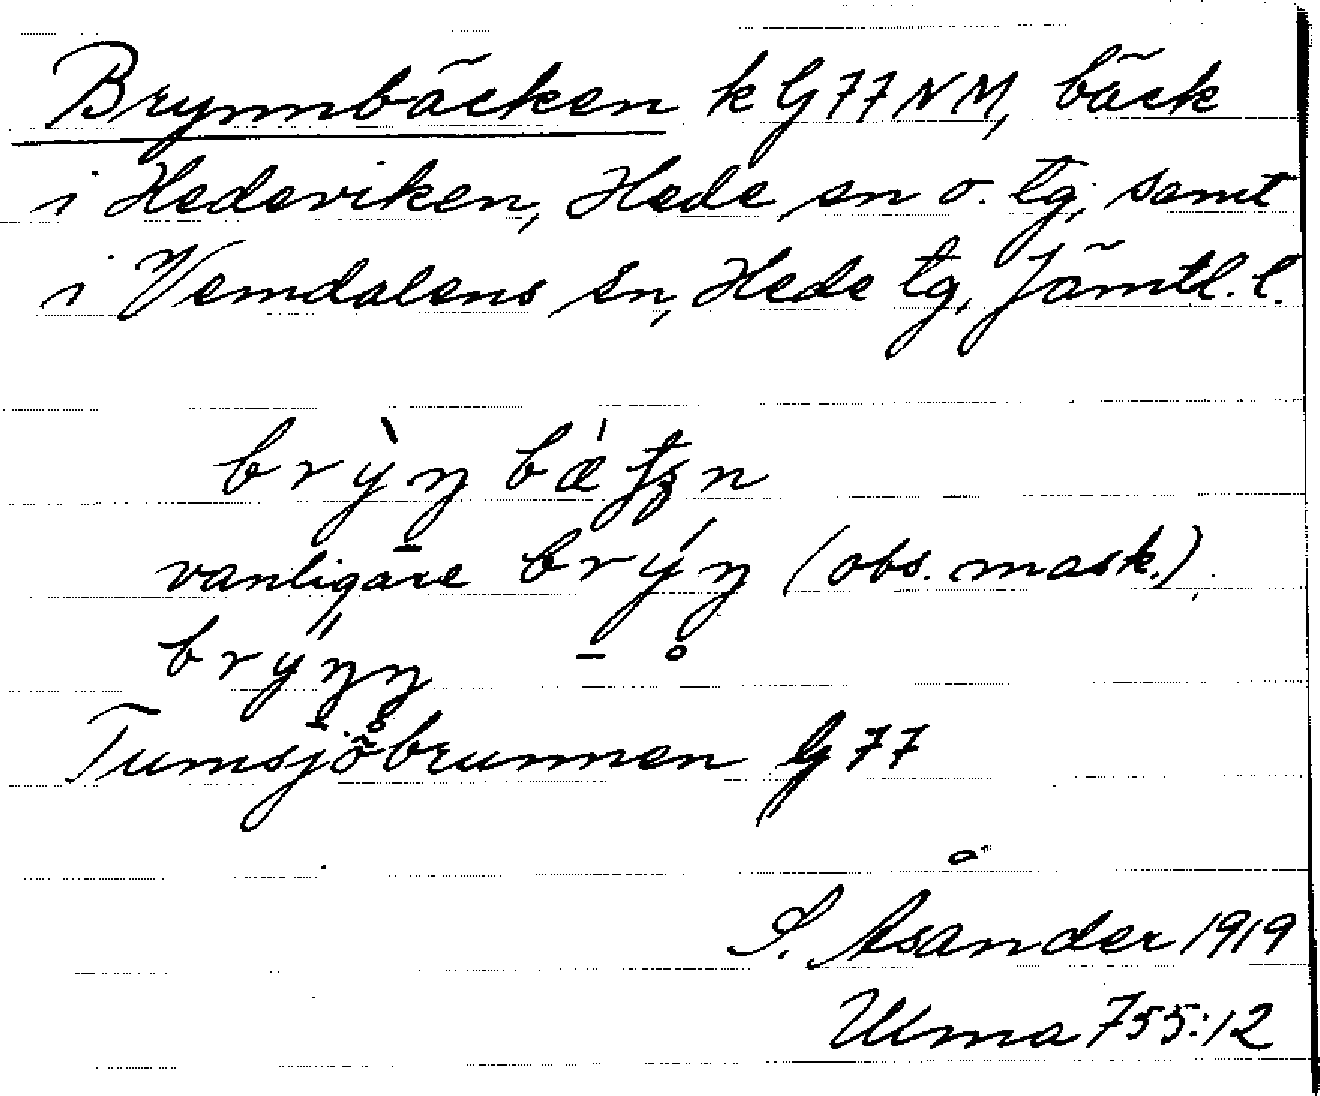 Brynnbäcken k G 77 NM, bäck
i Hedeviken, Hede sn o. tg, samt
i Vemdalens sn, Hede tg, Jämtl. l.
brỳŋ
vanligare brýŋ (obs. mask.)
brýŋŋ - o
Tumsjöbrunnen G 77
S. Åsander 1919
Ulma 755:12